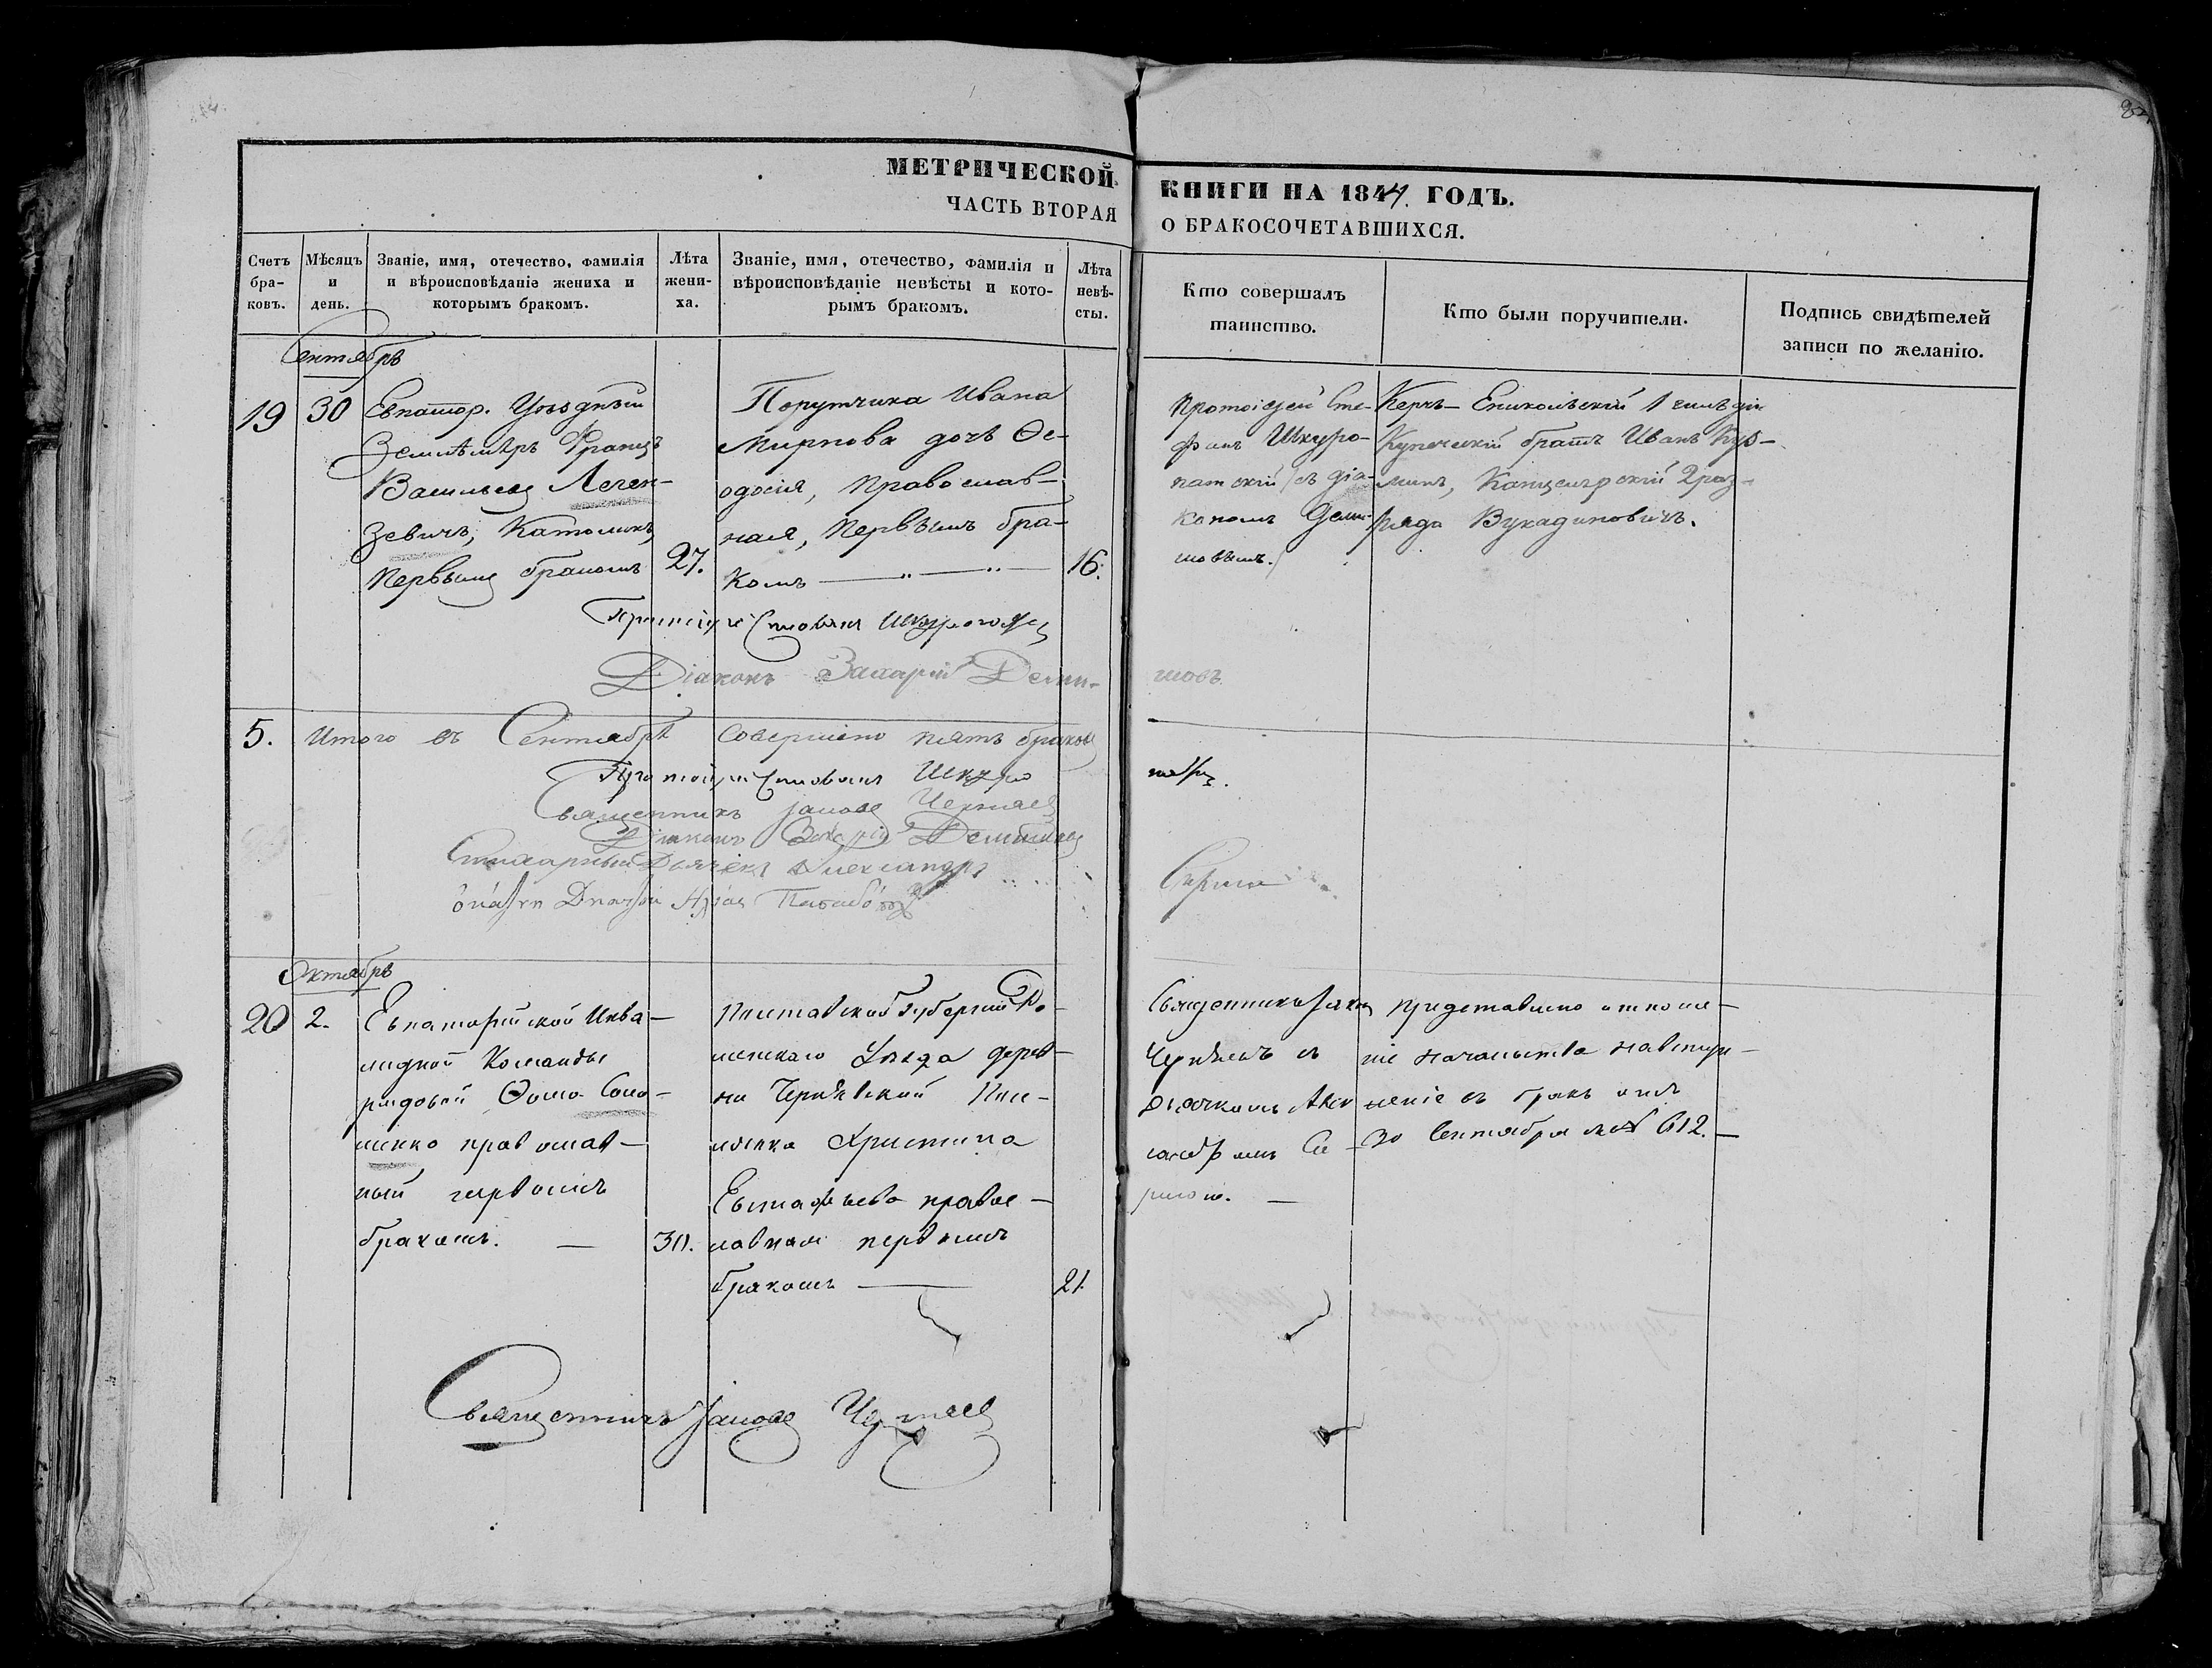 МЕТРИЧЕСКОЙ
ЧАСТЬ ВТОРАЯ
КНИГИ НА 1844. ГОДЪ.
О БРАКОСОЧЕТАВШИХСЯ.
Счетъ бра- ковъ.
Мѣсяцъ и день.
Званіе, имя, отечество, фамилія и вѣроисповѣданіе жениха и которымъ бракомъ.
Лѣта жени- ха.
Званіе, имя, отечество, фамилія и вѣроисповѣданіе невѣсты и кото- рымъ бракомъ.
Лѣта невѣ- сты.
Кто совершалъ таинство.
Кто были поручители.
Подпись свидѣтелей записи по желанію.
Сентябрь
19
30
Евпатор. Уѣздный
Землѣмѣръ Францъ
Васильевъ Лечен-
зевичъ, Католикъ
Первымъ бракомъ
27.
Порутчика Ивана
Миркова дочь Ѳе-
одосія, Православ-
ная, Первымъ бра-
комъ
16.
Протоіерей Сте-
фанъ Шкуро-
патскій съ діа-
кономъ Деми-
шовымъ.
Керчь-Еникольскій 1 гильдіи
Купеческій братъ Иванъ
Канцелярскій 2 раз-
ряда Вукадиновичъ.
Протоіерей Стефанъ
Діаконъ Захарій Деми-
шовъ
5.
Итого въ Сентябрѣ совершено пять браковъ
Протоіерей Стефанъ Шкуро
Священникъ Іаковъ Черняевъ
Діаконъ Захарій Демишовъ
Стихарный Дьячекъ Александръ
Октябрь
20
2.
Евпаторійской Инва-
лидной Команды
рядовой Ѳома Сома-
ненко православ-
ный первымъ
бракомъ.
30.
Полтавской Губерніи Ро-
менскаго Уѣзда дерев-
ни Чернѣвской Посе-
лянка Христина
Евстафьева правос-
лавная первымъ
бракомъ
21.
Священникъ Іаковъ
Черняевъ съ
дьячкомъ Алек
сандромъ Се-
Представлено отноше-
ніе начальства на вступ-
леніе въ бракъ отъ
30 Сентября за № 612.
Священникъ Іаковъ Черняевъ